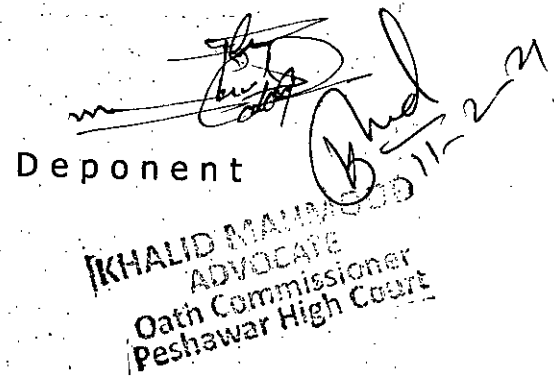 Deponent
11-2-21
KHALID MAHMOOD
ADVOCATE
Oath Commissioner
Peshawar High Court